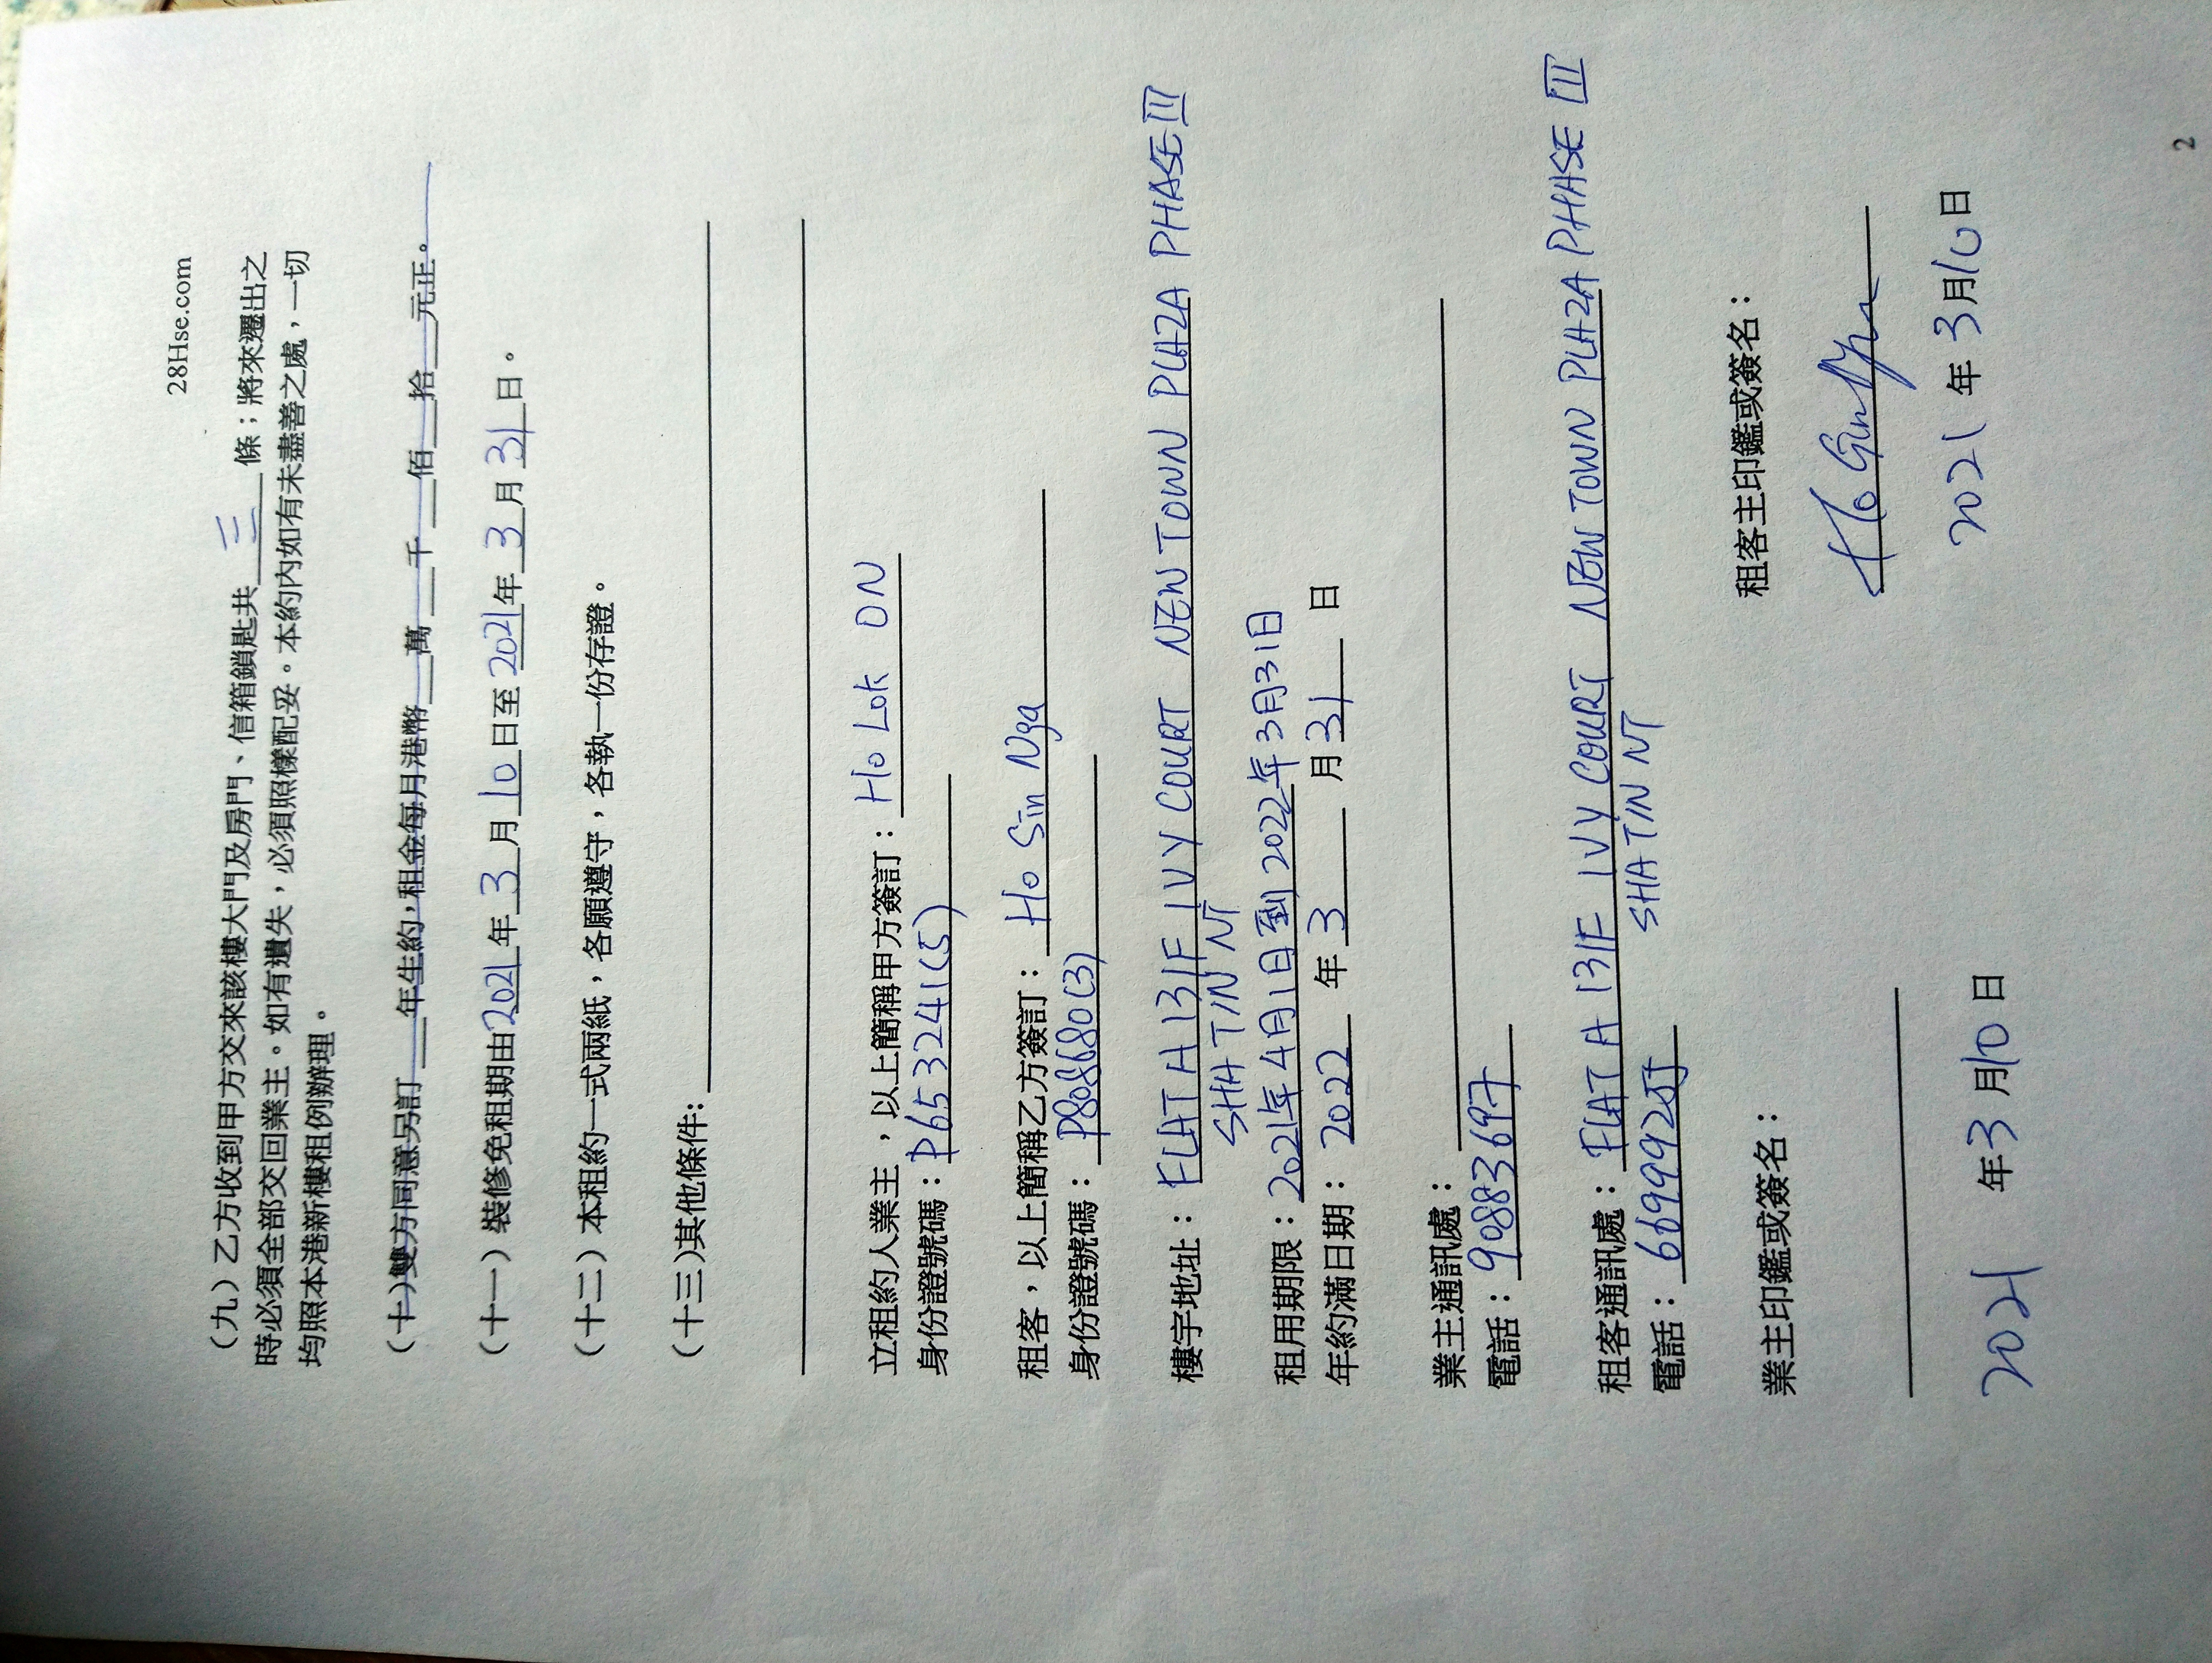 28Hse.com
（九）乙方收到甲方交來該樓大門及房門、信箱鎖匙共 三 條；將來遷出之
時必須全部交回業主。如有遺失，必須照樣配妥。本約內如有未盡善之處，一切
均照本港新樓租例辦理。
（十）雙方同意另訂___年生約，租金每月港幣___萬___千___佰___拾___元正。
（十一）裝修免租期由2021年 3 月 10 日至 2021年 3 月 31 日。
（十二）本租約一式兩紙，各願遵守，各執一份存證。
（十三)其他條件:
立租約人業主，以上簡稱甲方簽訂： Ho Lok ON
身份證號碼： P653241(5)
租客，以上簡稱乙方簽訂： Ho Sin Nga
身份證號碼： P808680(3)
樓宇地址： FLAT A 13/F IVY COURT NEW TOWN PLAZA PHASE III
SHA TIN NT
租用期限：2021年4月1日到2022年3月31日
年約滿日期： 2022 年 3 月 31 日
業主通訊處：
電話： 90883697
租客通訊處： FLAT A 13/F IVY COURT NEW TOWN PLAZA PHASE III
SHA TIN NT
電話：
業主印鑑或簽名： 租客主印鑑或簽名：
2021 年 3 月 10 日 2021 年 3 月 10 日
2